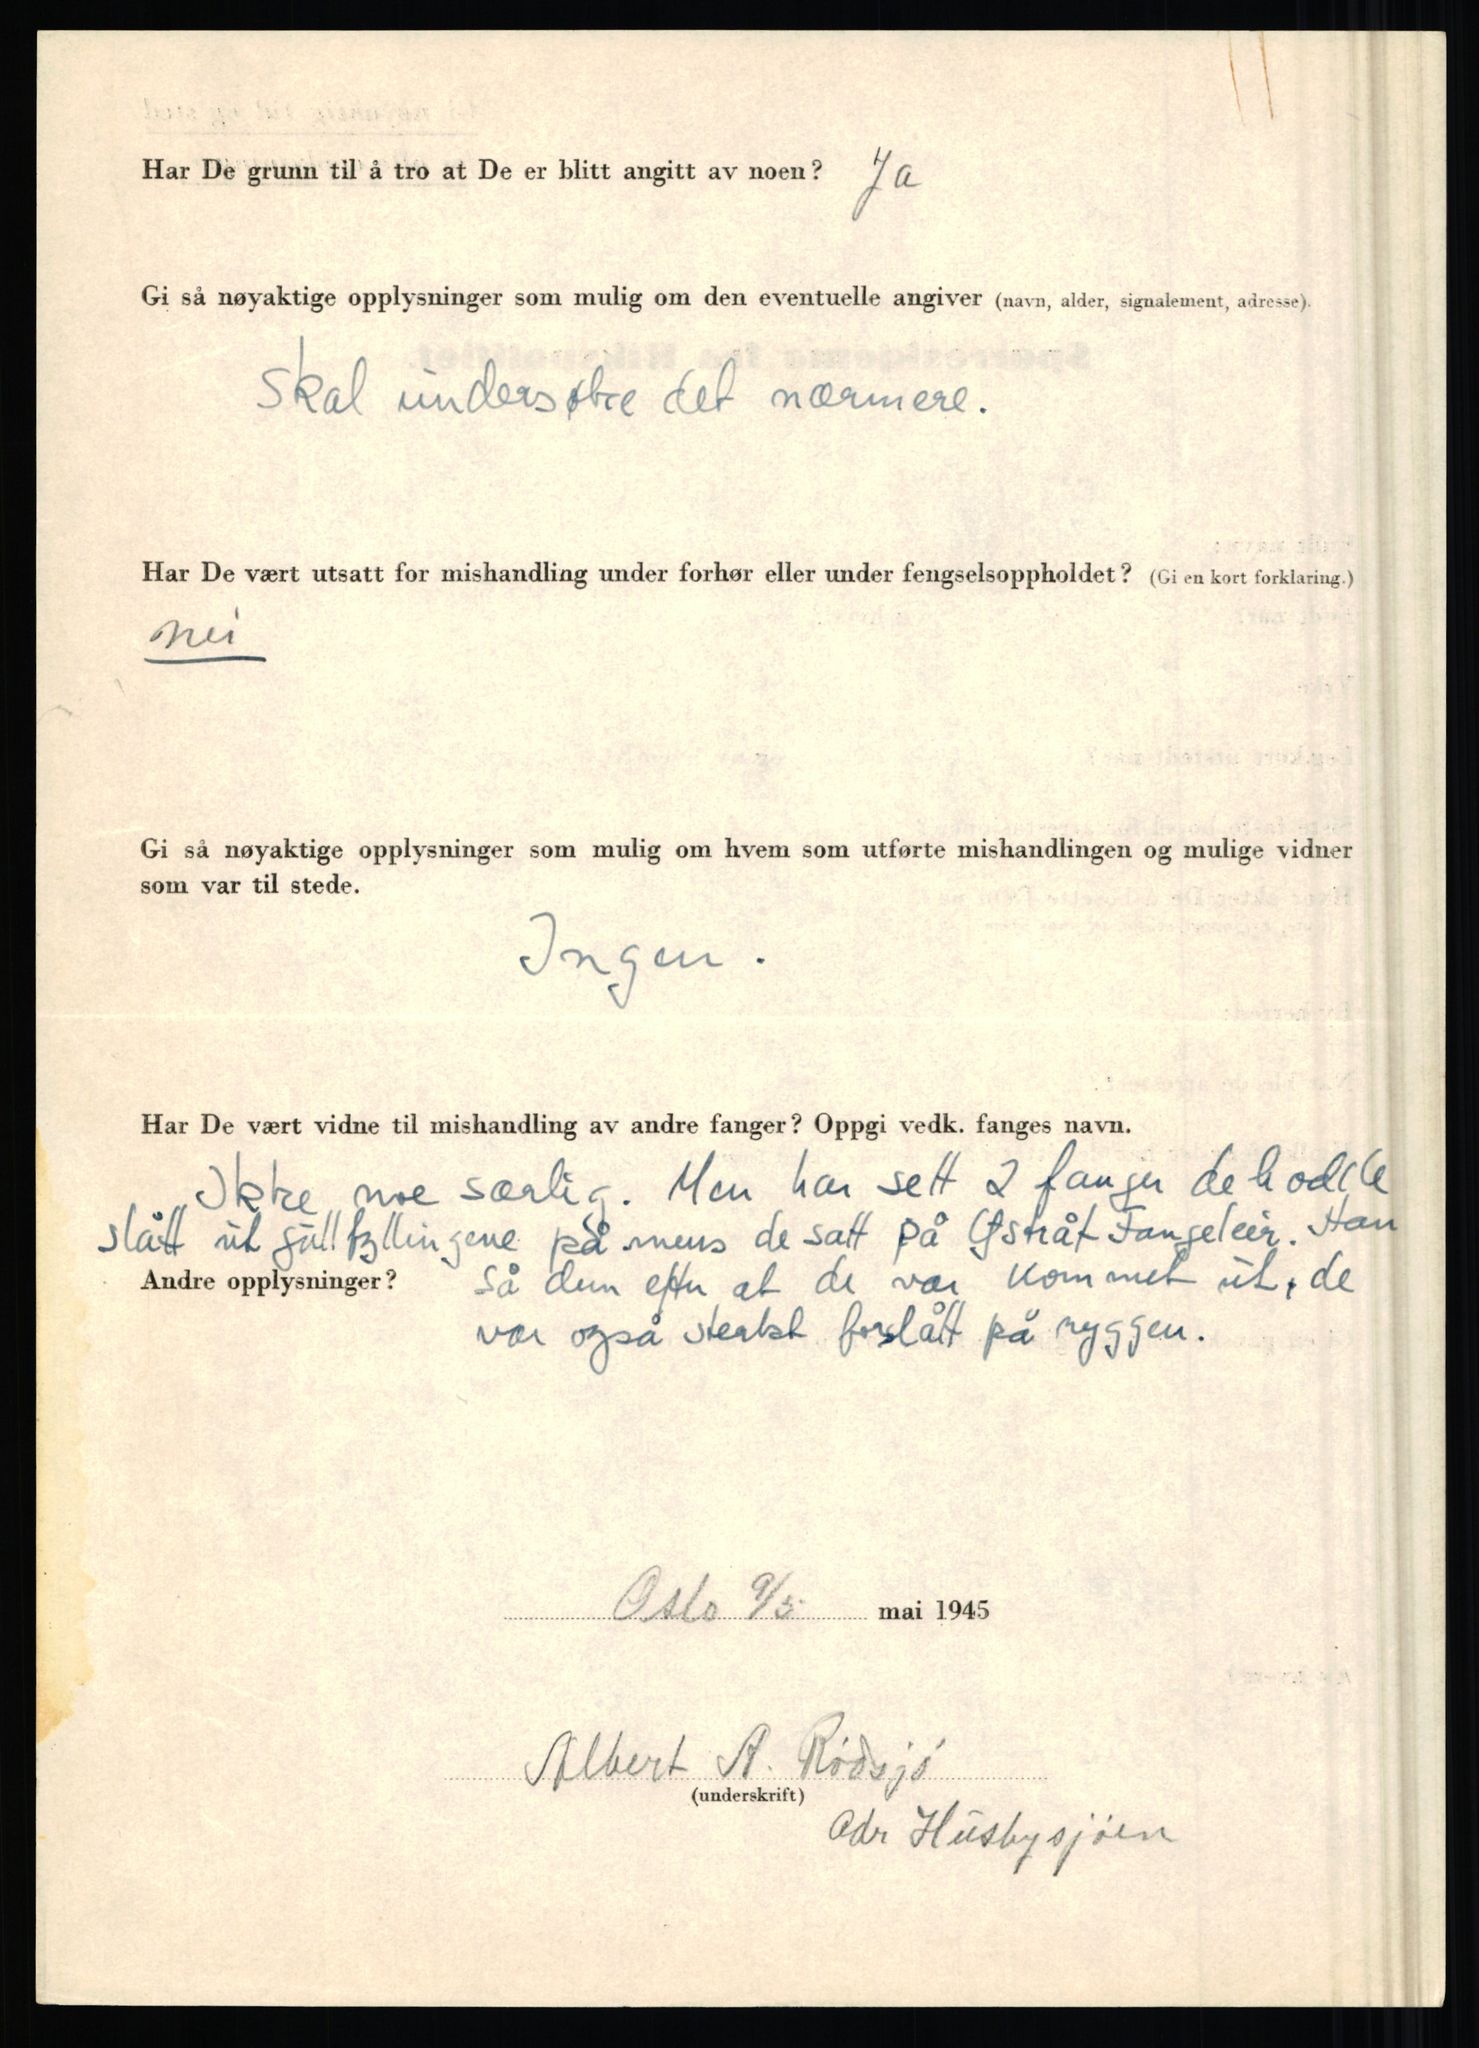 Har De grunn til å tro at De er blitt angitt av noen? Ja
Gi så nøyaktige opplysninger som mulig om den eventuelle angiver (navn, alder, signalement, adresse).
Skal undersøke det nærmere.
Har De vært utsatt for mishandling under forhør eller under fengselsoppholdet? (Gi en kort forklaring.)
nei
Gi så nøyaktige opplysninger som mulig om hvem som utførte mishandlingen og mulige vidner
som var til stede.
Ingen.
Har De vært vidne til mishandling av andre fanger? Oppgi vedk. fanges navn.
Ikke noe særlig. Men har sett 2 fanger de hadde
slått ut gullfyllingene på mens de satt på Østråt Fangeleir. Han
Andre opplysninger? så dem efter at de var kommet ut, de
var også sterkt forslått på ryggen.
Oslo 9/5 mai 1945
Albert A. Rødsjø
(underskrift)
Adr Husbysjøen